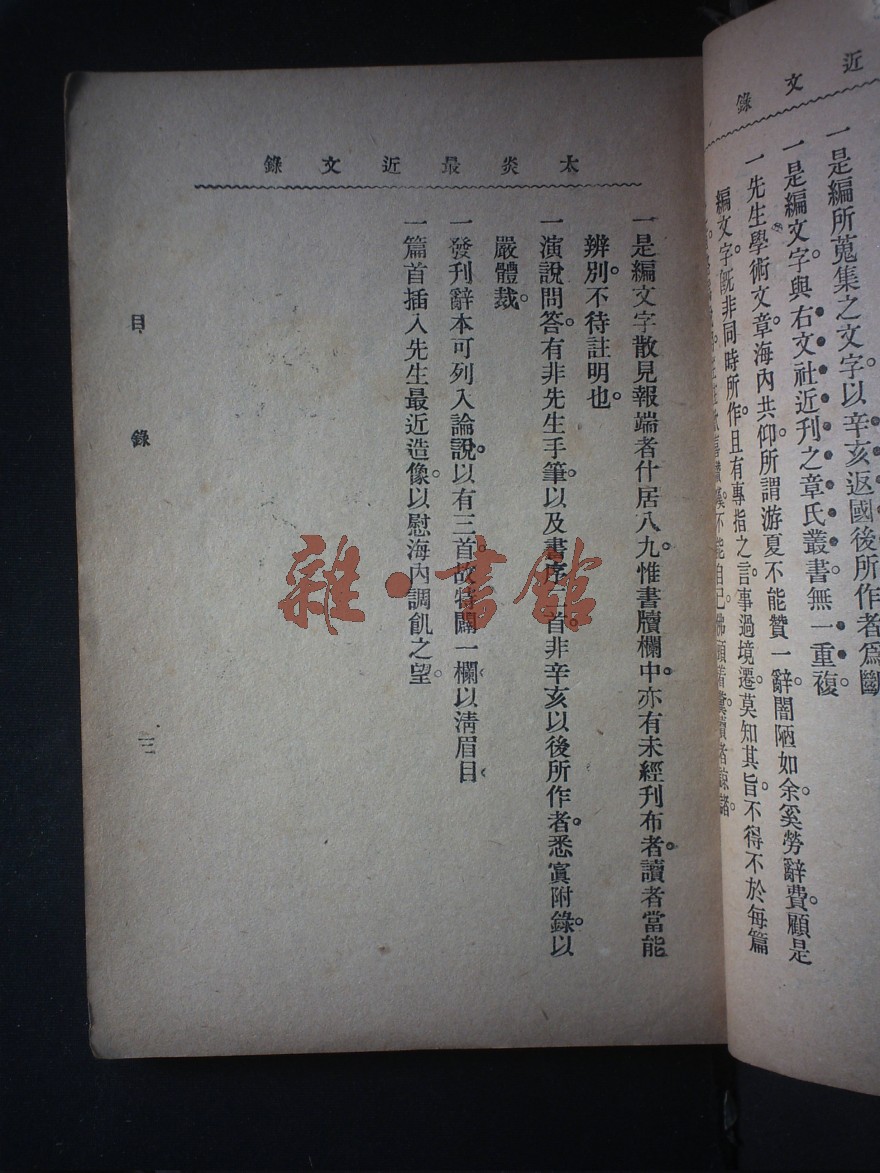 近文錄
一是編所蒐集之文字。以辛亥返國後所作者爲斷
一是編文字與右文社近刊之章氏叢書無一重複
一先生學術文章。海內共仰。所謂游夏不能贊一辭。闇陋如余。奚勞辭費。顧是
編文字。旣非同時所作。且有專指之言。事過境遷。莫知其旨。不得不於每篇
不能自已。佛頭着糞。讀者諒諸。
太炎最近文錄
一是編文字散見報端者什居八九。惟書牘欄中。亦有未經刊布者。讀者當能
辨別。不待註明也。
一演說問答。有非先生手筆。以及書序一首。非辛亥以後所作者。悉寘附錄。以
嚴體裁。
一發刊辭本可列入論說。以有三首。故特闢一欄。以淸眉目。
一篇首插入先生最近造像。以慰海內調飢之望。
目錄
三
雜·書館